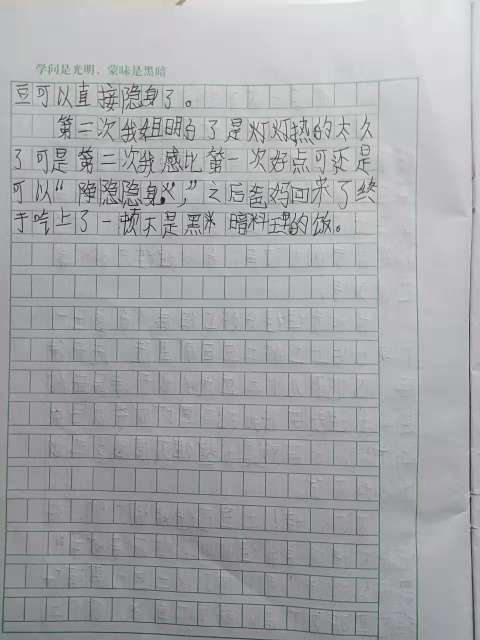 学问是光明,蒙昧是黑暗
豆可以直接隐身了。
第二次我姐明白了是灯灯热的太久
了可是第二次我感比第一次好点可还是
可以“隐隐隐身”,之后爸妈回来了终
于吃上了一顿不是黑米暗料理的饭。